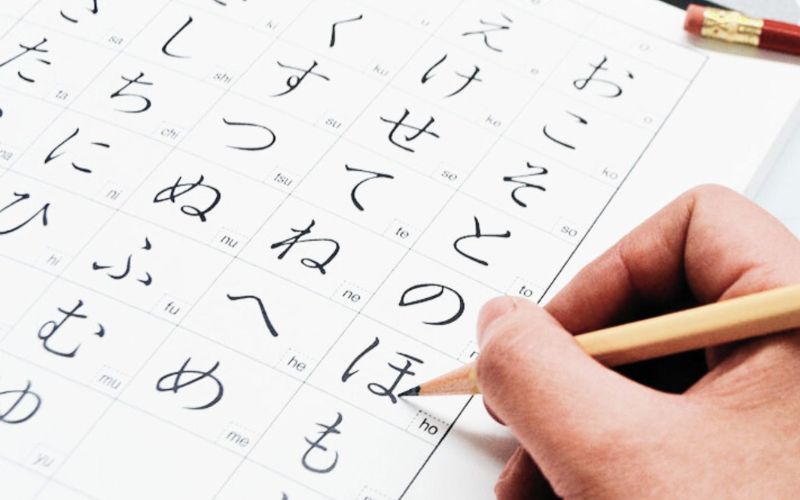 o
u え e お o
ki く ku け ke こ ko
さ sa し shi す su せ se そ so
た ta ち chi つ tsu て te と to
na に ni ぬ nu ね ne の
ひ hi ふ fu へ he ほ ho
む mu め me も
ゆ yu